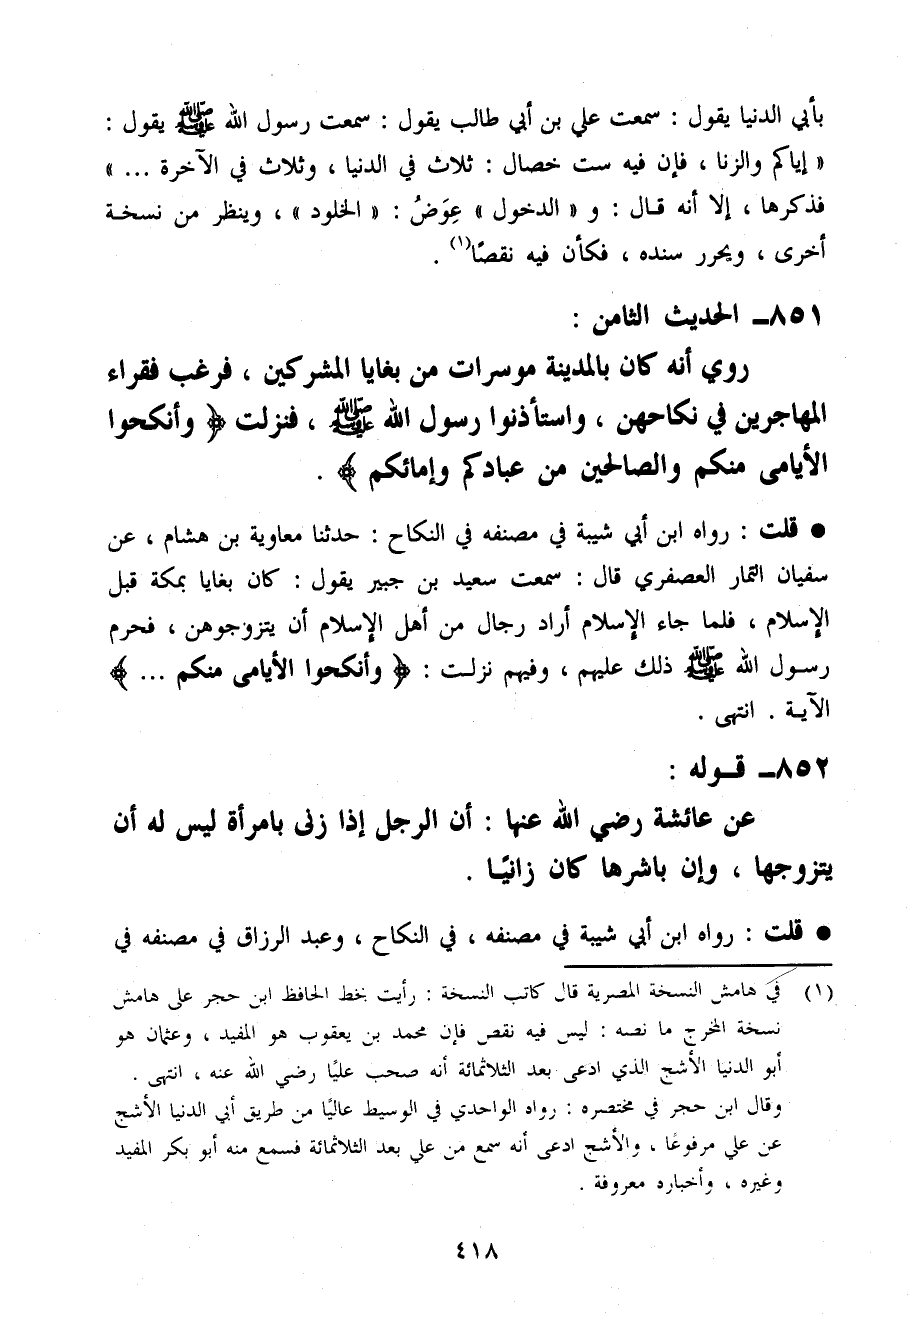 بأبي الدنيا يقول : سمعت علي بن أبي طالب يقول : سمعت رسول الله ﷺ يقول :
« إياكم والزنا ، فإن فيه ست خصال : ثلاث في الدنيا ، وثلاث في الآخرة ... »
فذكرها ، إلا أنه قـال : و « الدخول » عِوَضُ : « الخلود » ، وينظر من نسخـة
أخرى ، ويحرر سنده ، فكأن فيه نقصًا(١) .
٨٥١ـ الحديث الثامن :
روي أنه كان بالمدينة موسرات من بغايا المشركين ، فرغب فقراء
المهاجرين في نكاحهن ، واستأذنوا رسول الله ﷺ ، فنزلت ﴿ وأنكحوا
الأيامى منكم والصالحين من عبادكم وإمائكم ﴾ .
● قلت : رواه ابن أبي شيبة في مصنفه في النكاح : حدثنا معاوية بن هشام ، عن
سفيان التمار العصفري قال : سمعت سعيد بن جبير يقول : كان بغايا بمكة قبل
الإسلام ، فلما جاء الإسلام أراد رجال من أهل الإسلام أن يتزوجوهن ، فحرم
رسـول الله ﷺ ذلك عليهم ، وفيهم نزلـت : ﴿ وأنكحوا الأيامى منكم ... ﴾
الآيـة . انتهى .
٨٥٢ـ قـوله :
عن عائشة رضي الله عنها : أن الرجل إذا زنى بامرأة ليس له أن
يتزوجها ، وإن باشرها كان زانيًـا .
● قلت : رواه ابن أبي شيبة في مصنفه ، في النكاح ، وعبد الرزاق في مصنفه في
(١) في هامش النسخة المصرية قال كاتب النسخة : رأيت بخط الحافظ ابن حجر على هامش
نسخة المخرج ما نصه : ليس فيه نقص فإن محمد بن يعقوب هو المفيد ، وعثمان هو
أبو الدنيا الأشج الذي ادعى بعد الثلاثمائة أنه صحب عليًا رضي الله عنه ، انتهى .
وقال ابن حجر في مختصره : رواه الواحدي في الوسيط عاليًا من طريق أبي الدنيا الأشج
عن علي مرفوعًا ، والأشج ادعى أنه سمع من علي بعد الثلاثمائة فسمع منه أبو بكر المفيد
وغيره ، وأخباره معروفة .
٤١٨